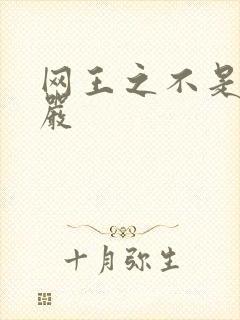 网王之不是
严
十月弥生